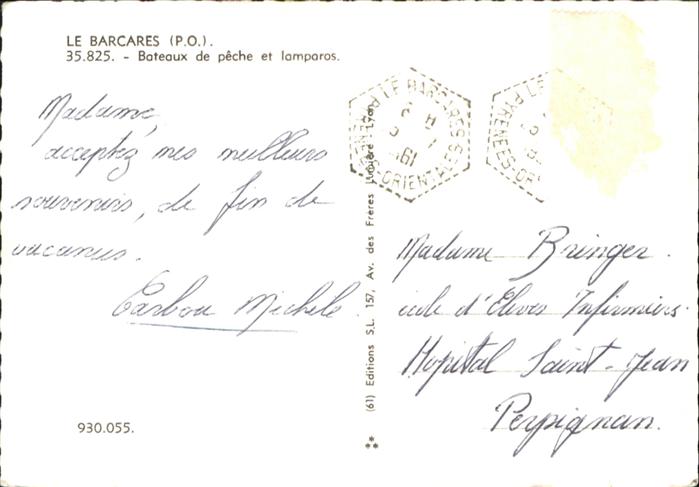 LE BARCARES (P.O.).
35.825. - Bateaux de pêche et lamparos.
Madame,
acceptez mes meilleurs
souvenirs, de fin de
vacances.
Carbou Michele.
930.055.
(61) Editions S.L. 157, Av. des Frères Lumière Lyon
LE BARCARES
PYRENEES-ORIENTALES
1961
LE
PYRENEES-OR
Madame Bringer.
école d'Elèves Infirmiers.
Hopital Saint-Jean
Perpignan.